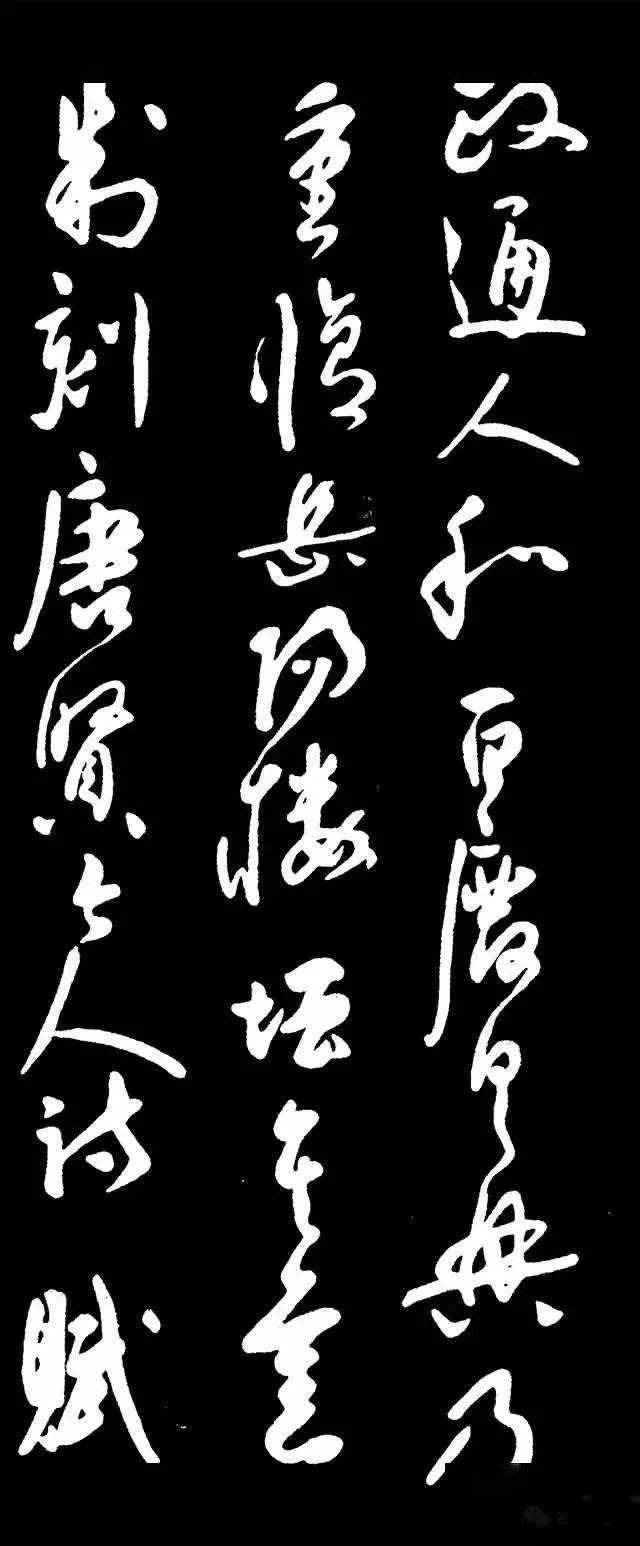 政通人和百廢具興乃
重修岳陽樓增其舊
制刻唐賢今人詩賦